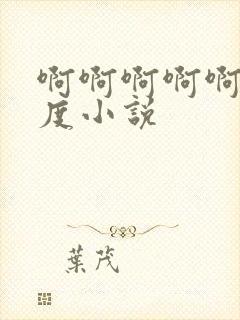 啊啊啊啊啊
度小说
葉茂